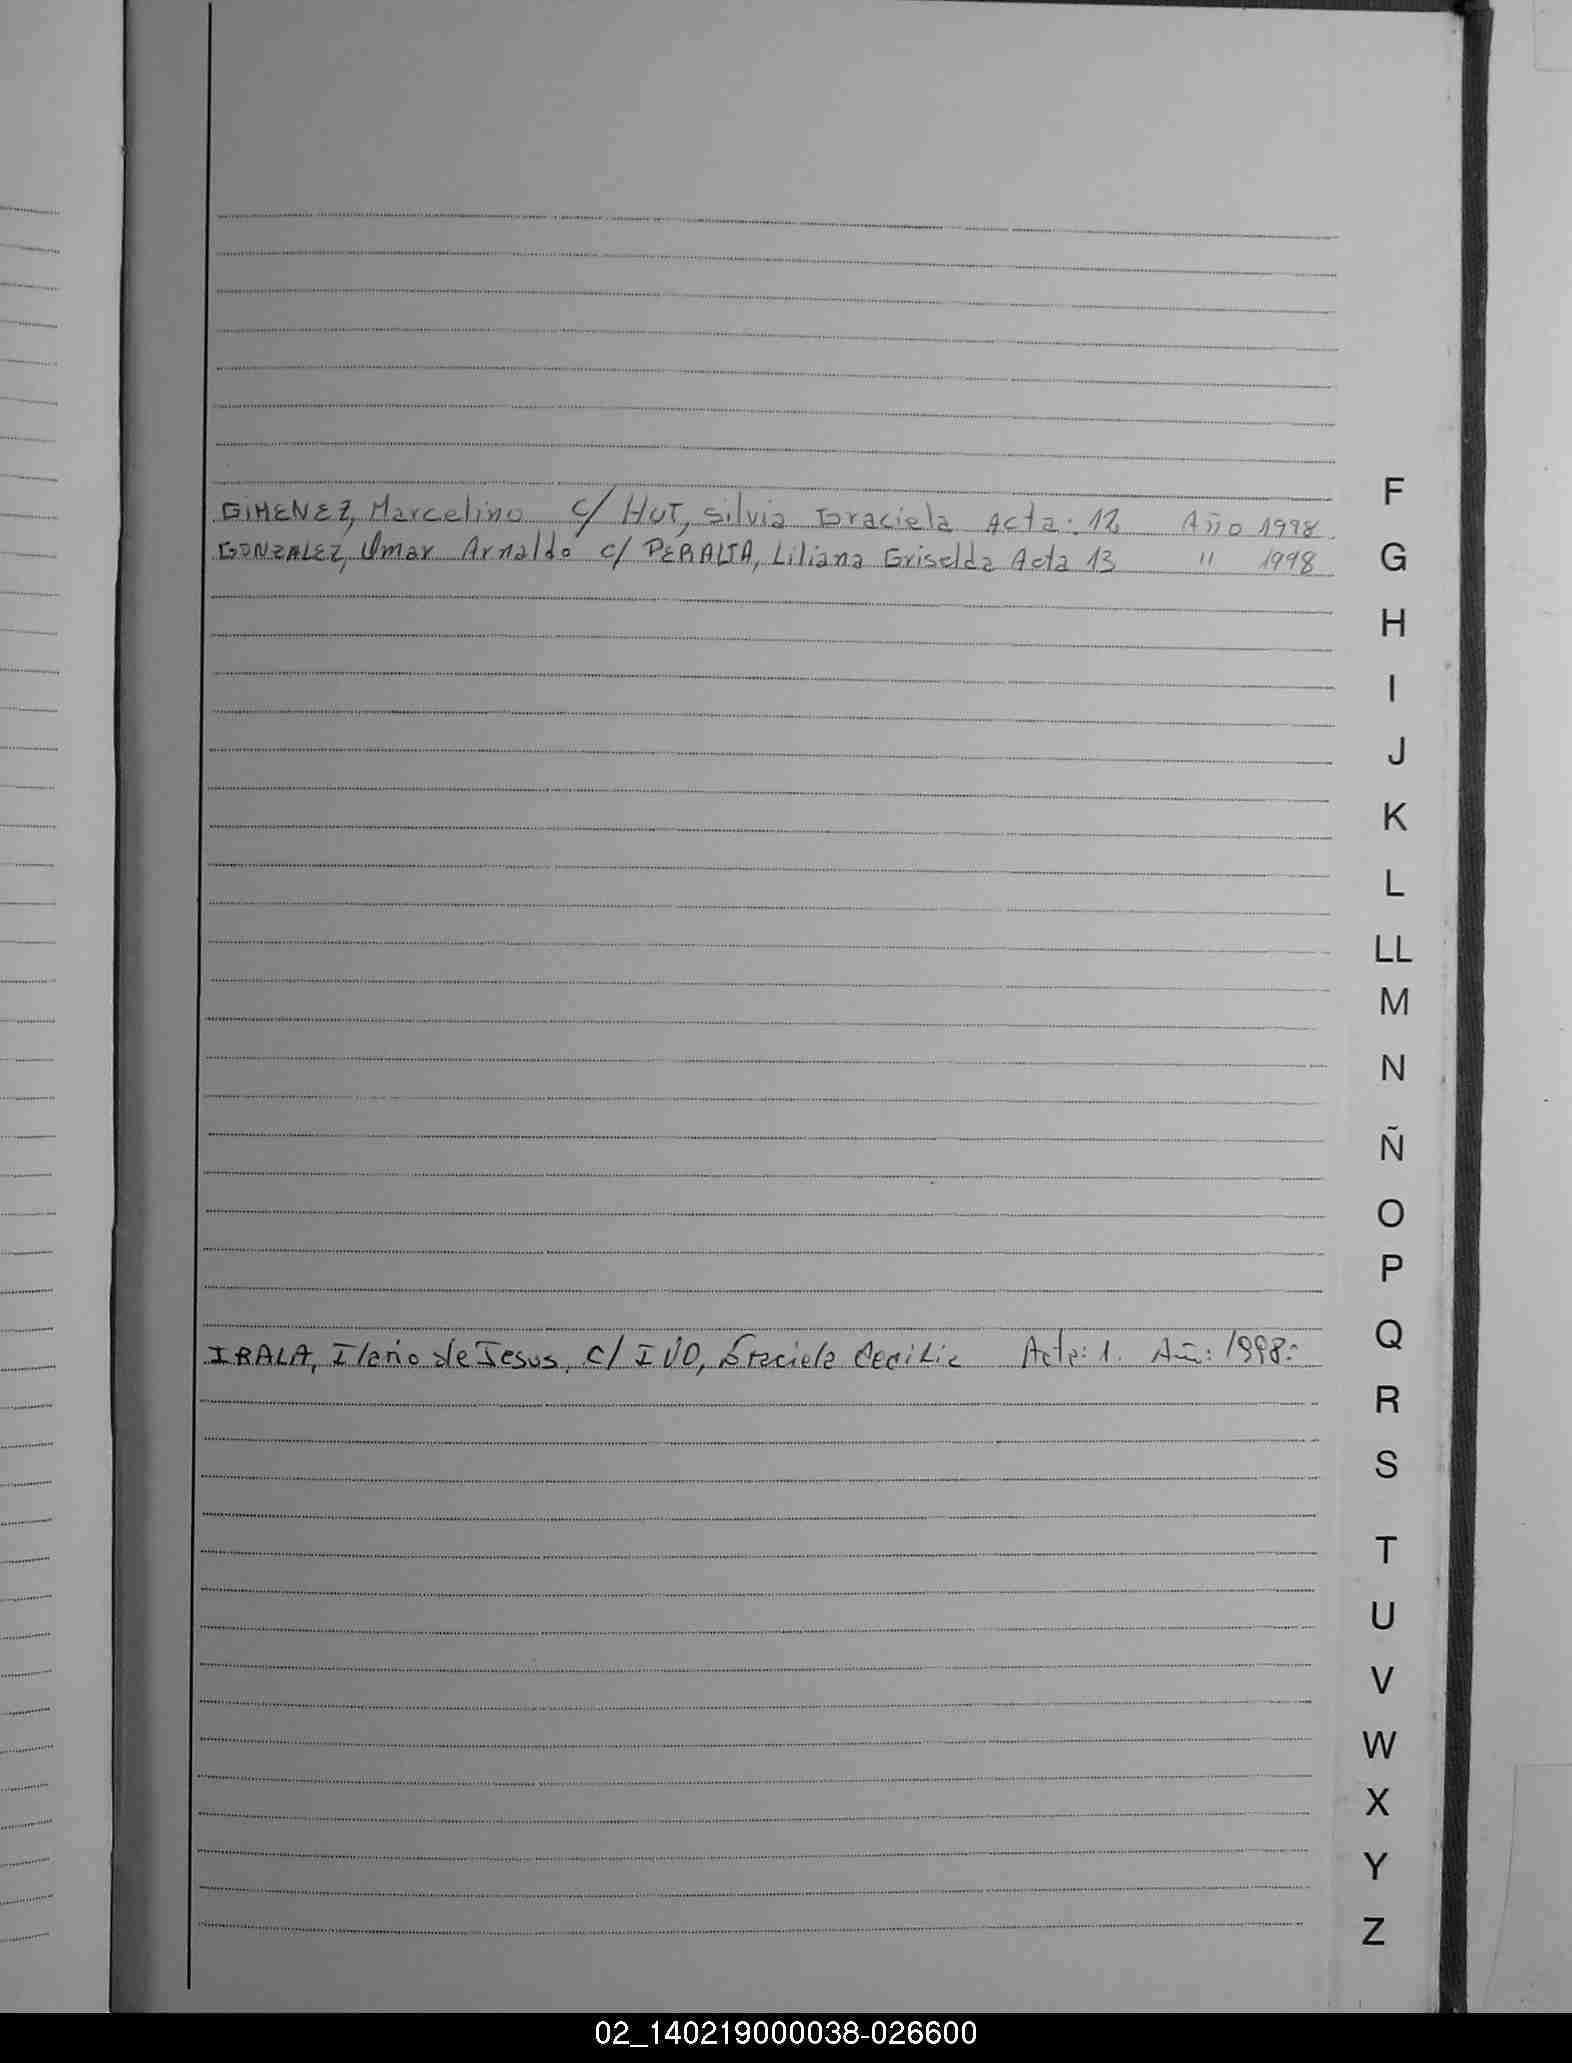 F
GIMENEZ, Marcelino c/ HUT, Silvia Graciela Acta: 12 Año 1998.
GONZALEZ, Omar Arnaldo c/ PERALTA, Liliana Griselda Acta 13 " 1998
G
H
I
J
K
L
LL
M
N
Ñ
O
P
Q
IRALA, Ilario de Jesus, c/ IVO, Graciela Cecilia Acta: 1. Año: 1998:
R
S
T
U
V
W
X
Y
Z
02_140219000038-026600